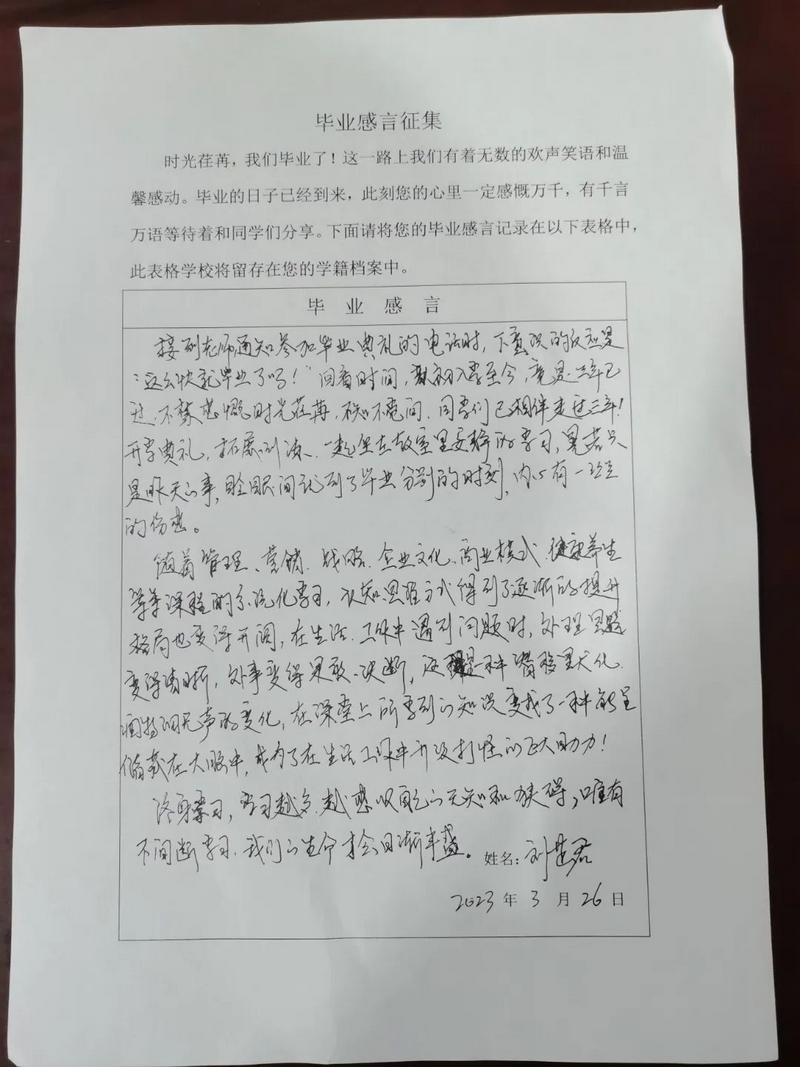 毕业感言征集
时光荏苒，我们毕业了！这一路上我们有着无数的欢声笑语和温
馨感动。毕业的日子已经到来，此刻您的心里一定感慨万千，有千言
万语等待着和同学们分享。下面请将您的毕业感言记录在以下表格中，
此表格学校将留存在您的学籍档案中。
毕 业 感 言
接到老师通知参加毕业典礼的电话时，下意识的反应是
“这么快就毕业了吗！”回看时间，从初入学至今，竟是三年已
过，不禁感慨时光荏苒，不知不觉间，同学们已相伴走过三年！
开学典礼，拓展训练，一起坐在教室里安静的学习，宛若只
是昨天的事，眨眼间就到了毕业分别的时刻，内心有一丝丝
的伤感。
随着管理、营销、战略、企业文化、商业模式、健康养生
等等课程的系统化学习，认知思维方式得到了逐渐的提升
格局也变得开阔，在生活、工作中遇到问题时，处理思路
变得清晰，处事变得果敢、决断，这是一种潜移默化、
润物细无声的变化，在课堂上所学到的知识变成了一种能量
储藏在大脑中，成为了在生活工作中升级打怪的巨大助力！
终身学习，学习越多，越感叹自己的无知和狭碍，唯有
不间断学习，我们的生命才会日渐丰盛。 姓名：刘
2023 年 3 月 26 日